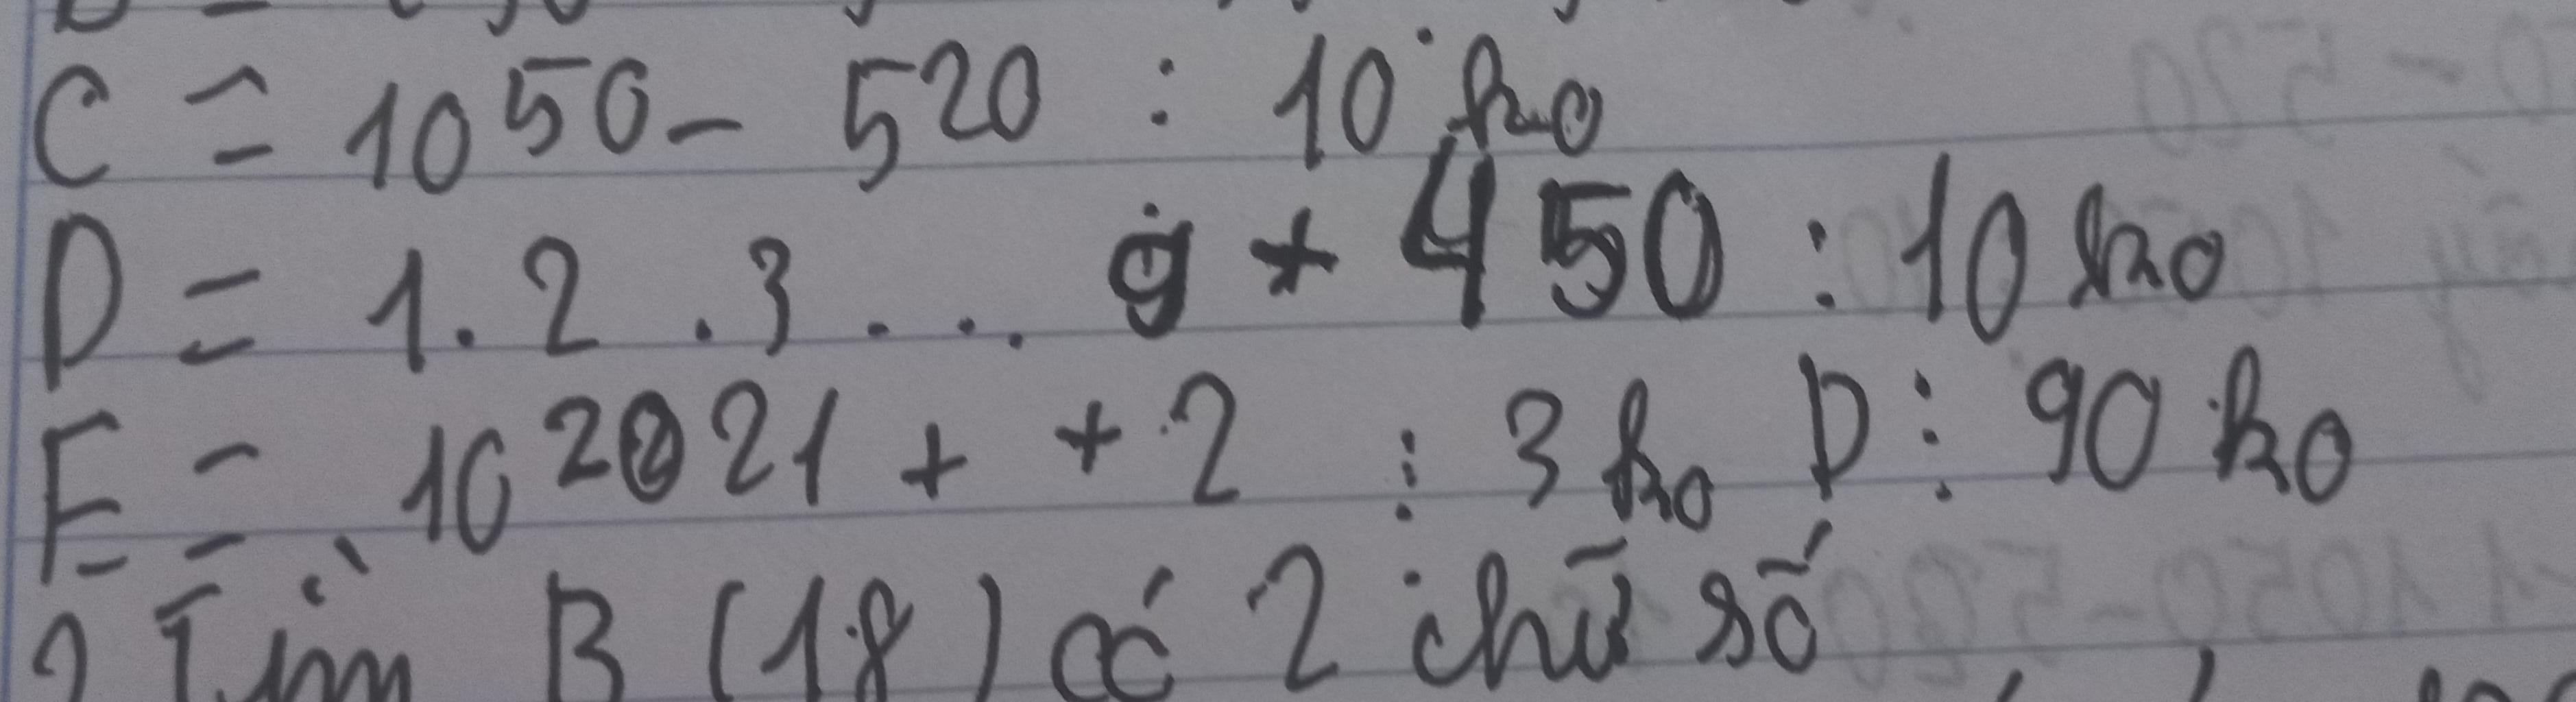 C = 10⁵⁰ - 520 : 10 ko
D = 1.2.3... 9 + 450 : 10 ko
E = 10²⁰²¹ + + 2 ⋮ 3 ko D ⋮ 90 ko
2 Tìm B (18) có 2 chữ số